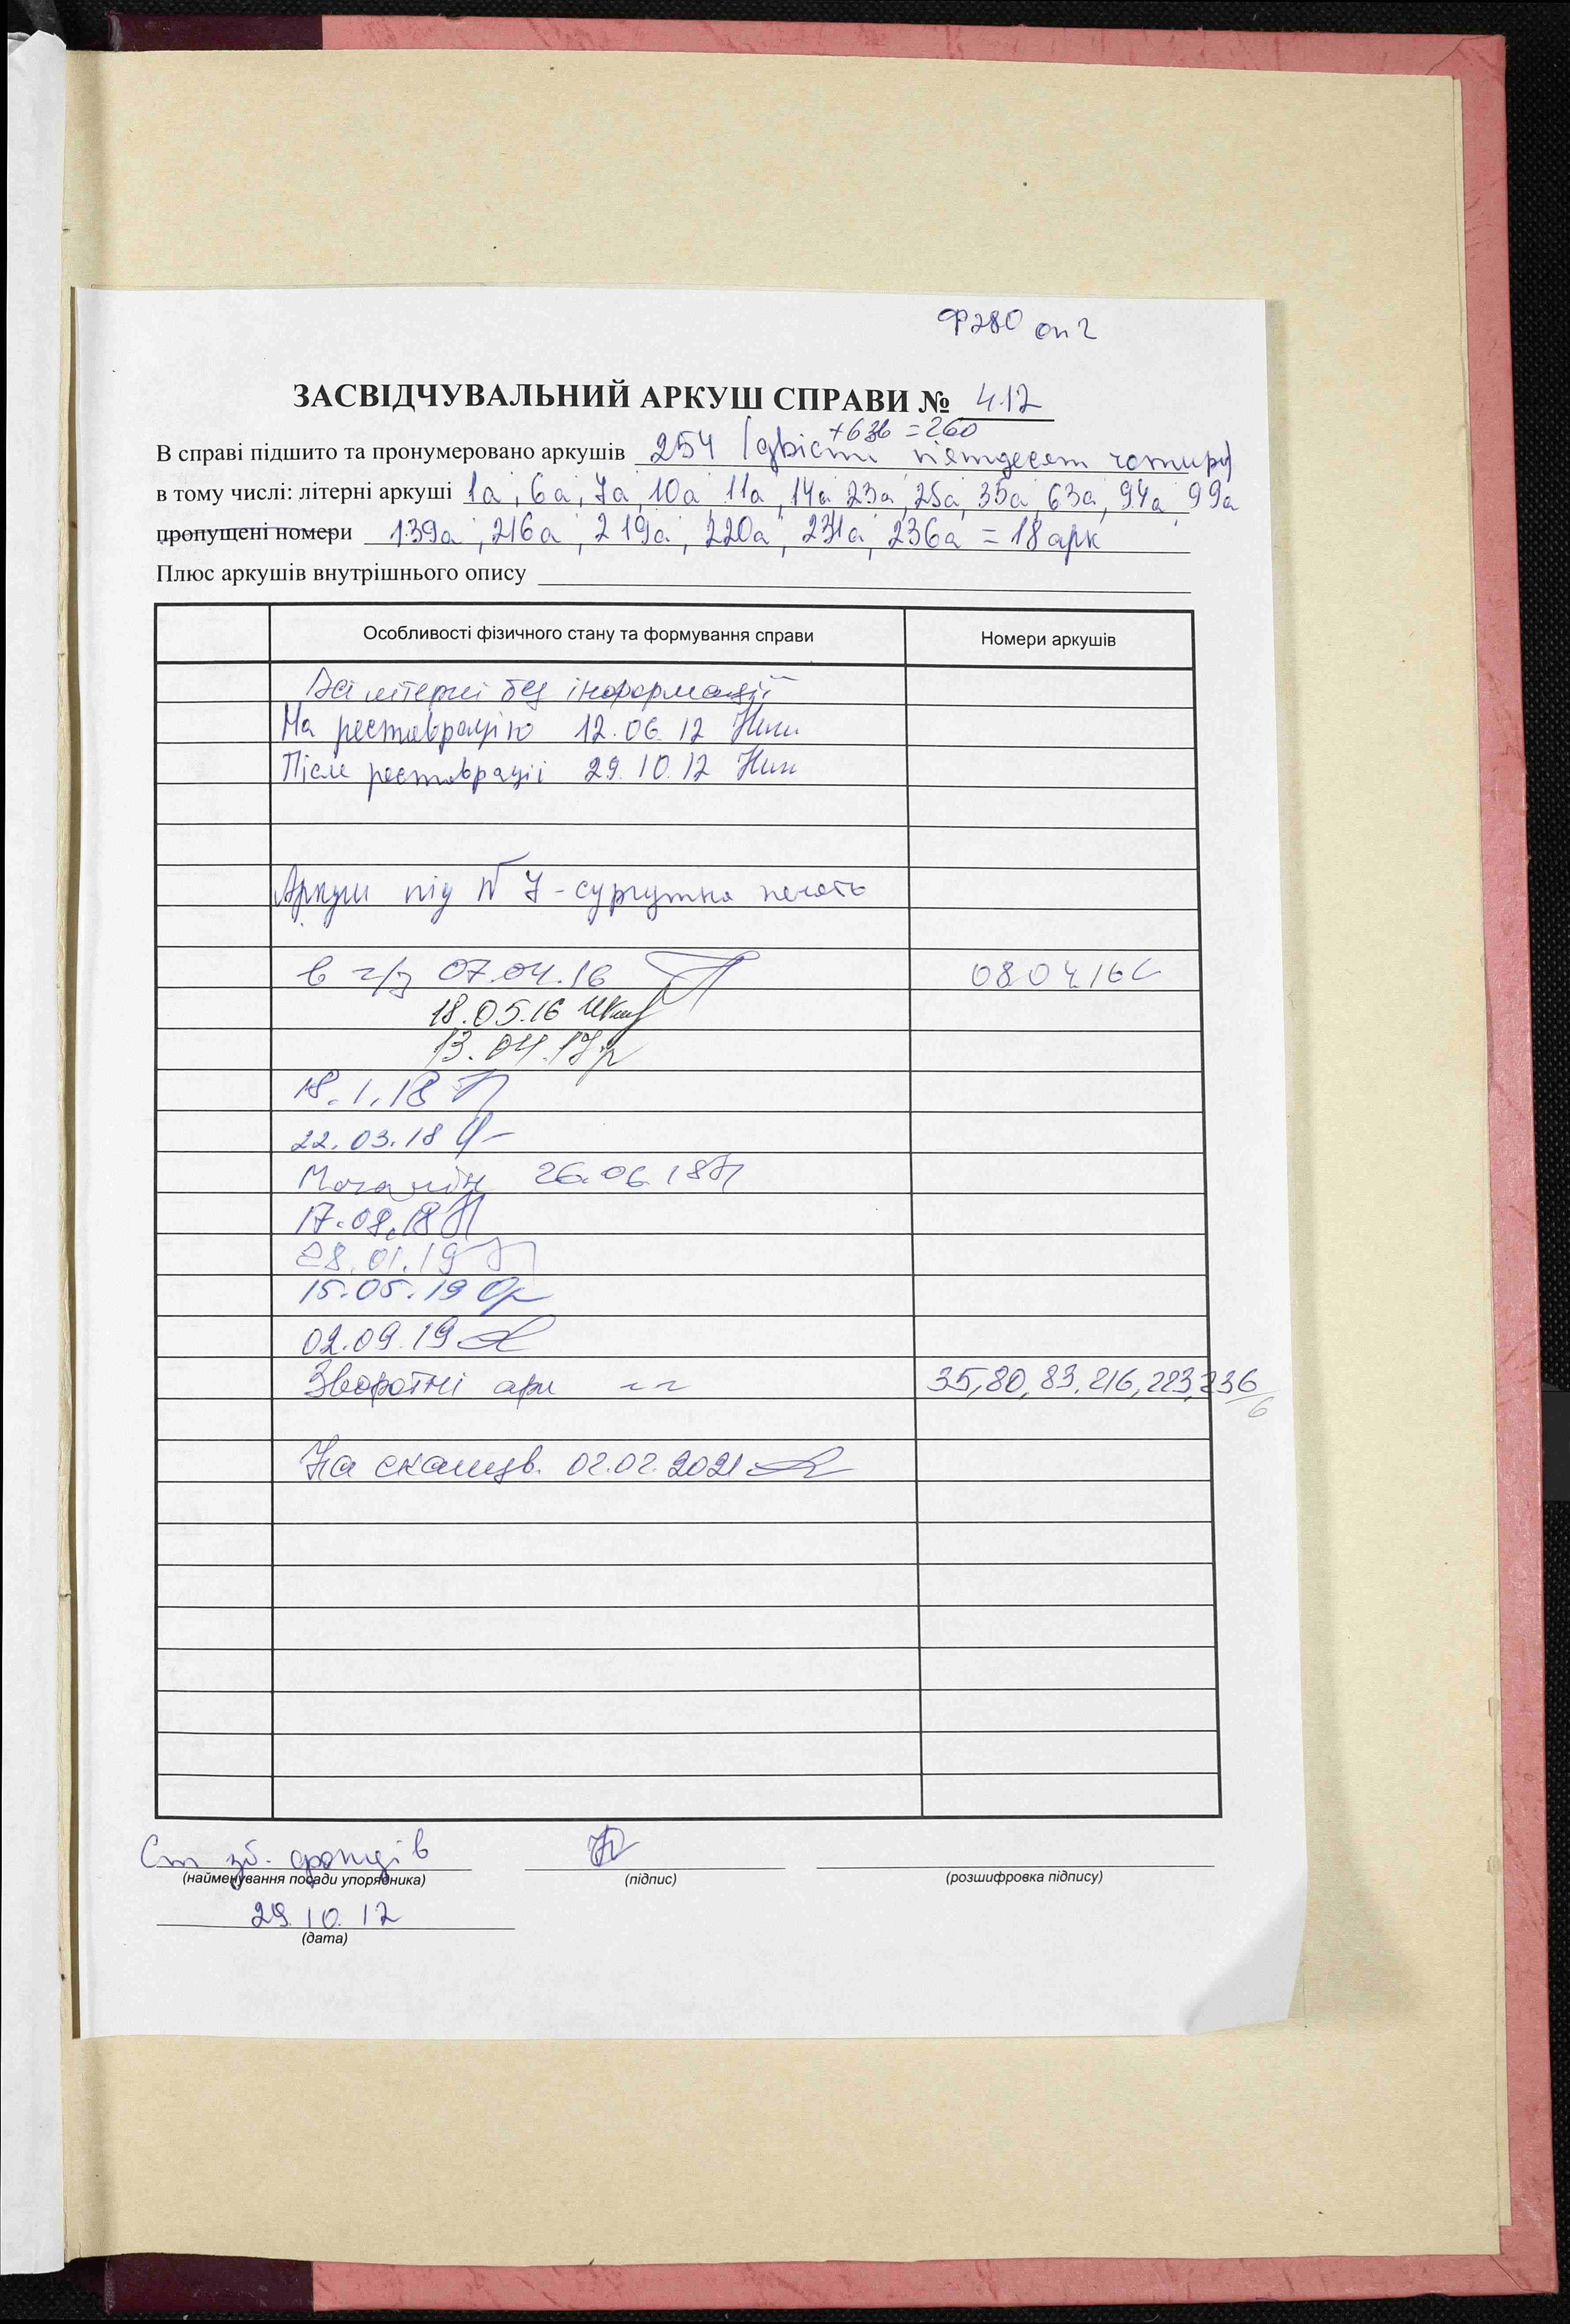 Ф280 оп 2
ЗАСВІДЧУВАЛЬНИЙ АРКУШ СПРАВИ № 412
+6зв = 260
В справі підшито та пронумеровано аркушів 254 (двісти пятдесят чотири)
в тому числі: літерні аркуші 1а, 6а, 7а, 10а 11а, 14а 23а, 25а, 35а, 63а, 94а, 99а
пропущені номери 139а, 216а, 219а, 220а, 231а, 236а = 18 арк
Плюс аркушів внутрішнього опису
Особливості фізичного стану та формування справи Номери аркушів
Всі літерні без інформації
На реставрацію 12.06.12
Після реставрації 29.10.12
Аркуш під № 7 - сургутна печать
в ч/з 07.04.16 08.04.16
18.05.16
13.04.17
18.1.18
22.03.18
26.06.18
17.08.18
28.01.19
15.05.19
02.09.19
Зворотні арк 35, 80, 83, 216, 223, 236
6
На сканув. 02.02.2021
Ст зб. фондів
(найменування посади упорядника) (підпис) (розшифровка підпису)
29.10.12
(дата)